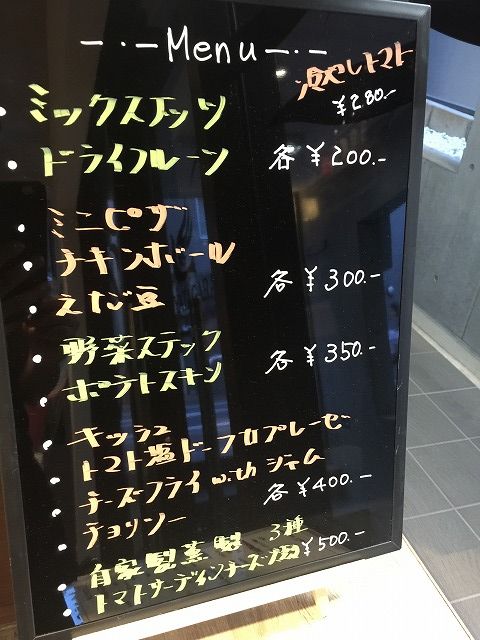 Menu
冷やしトマト
¥280.-
・ミックスナッツ
・ドライフルーツ 各¥200.-
・ミニピザ
・チキンボール
・えだ豆 各¥300.-
・野菜スティック
・ポテトスキン 各¥350.-
・キッシュ
・トマト塩ドーフカプレーゼ
・チーズフライ with ジャム
・チョリソー 各¥400.-
・自家製薫製 3種
・トマトサーディンチーズ ¥500.-